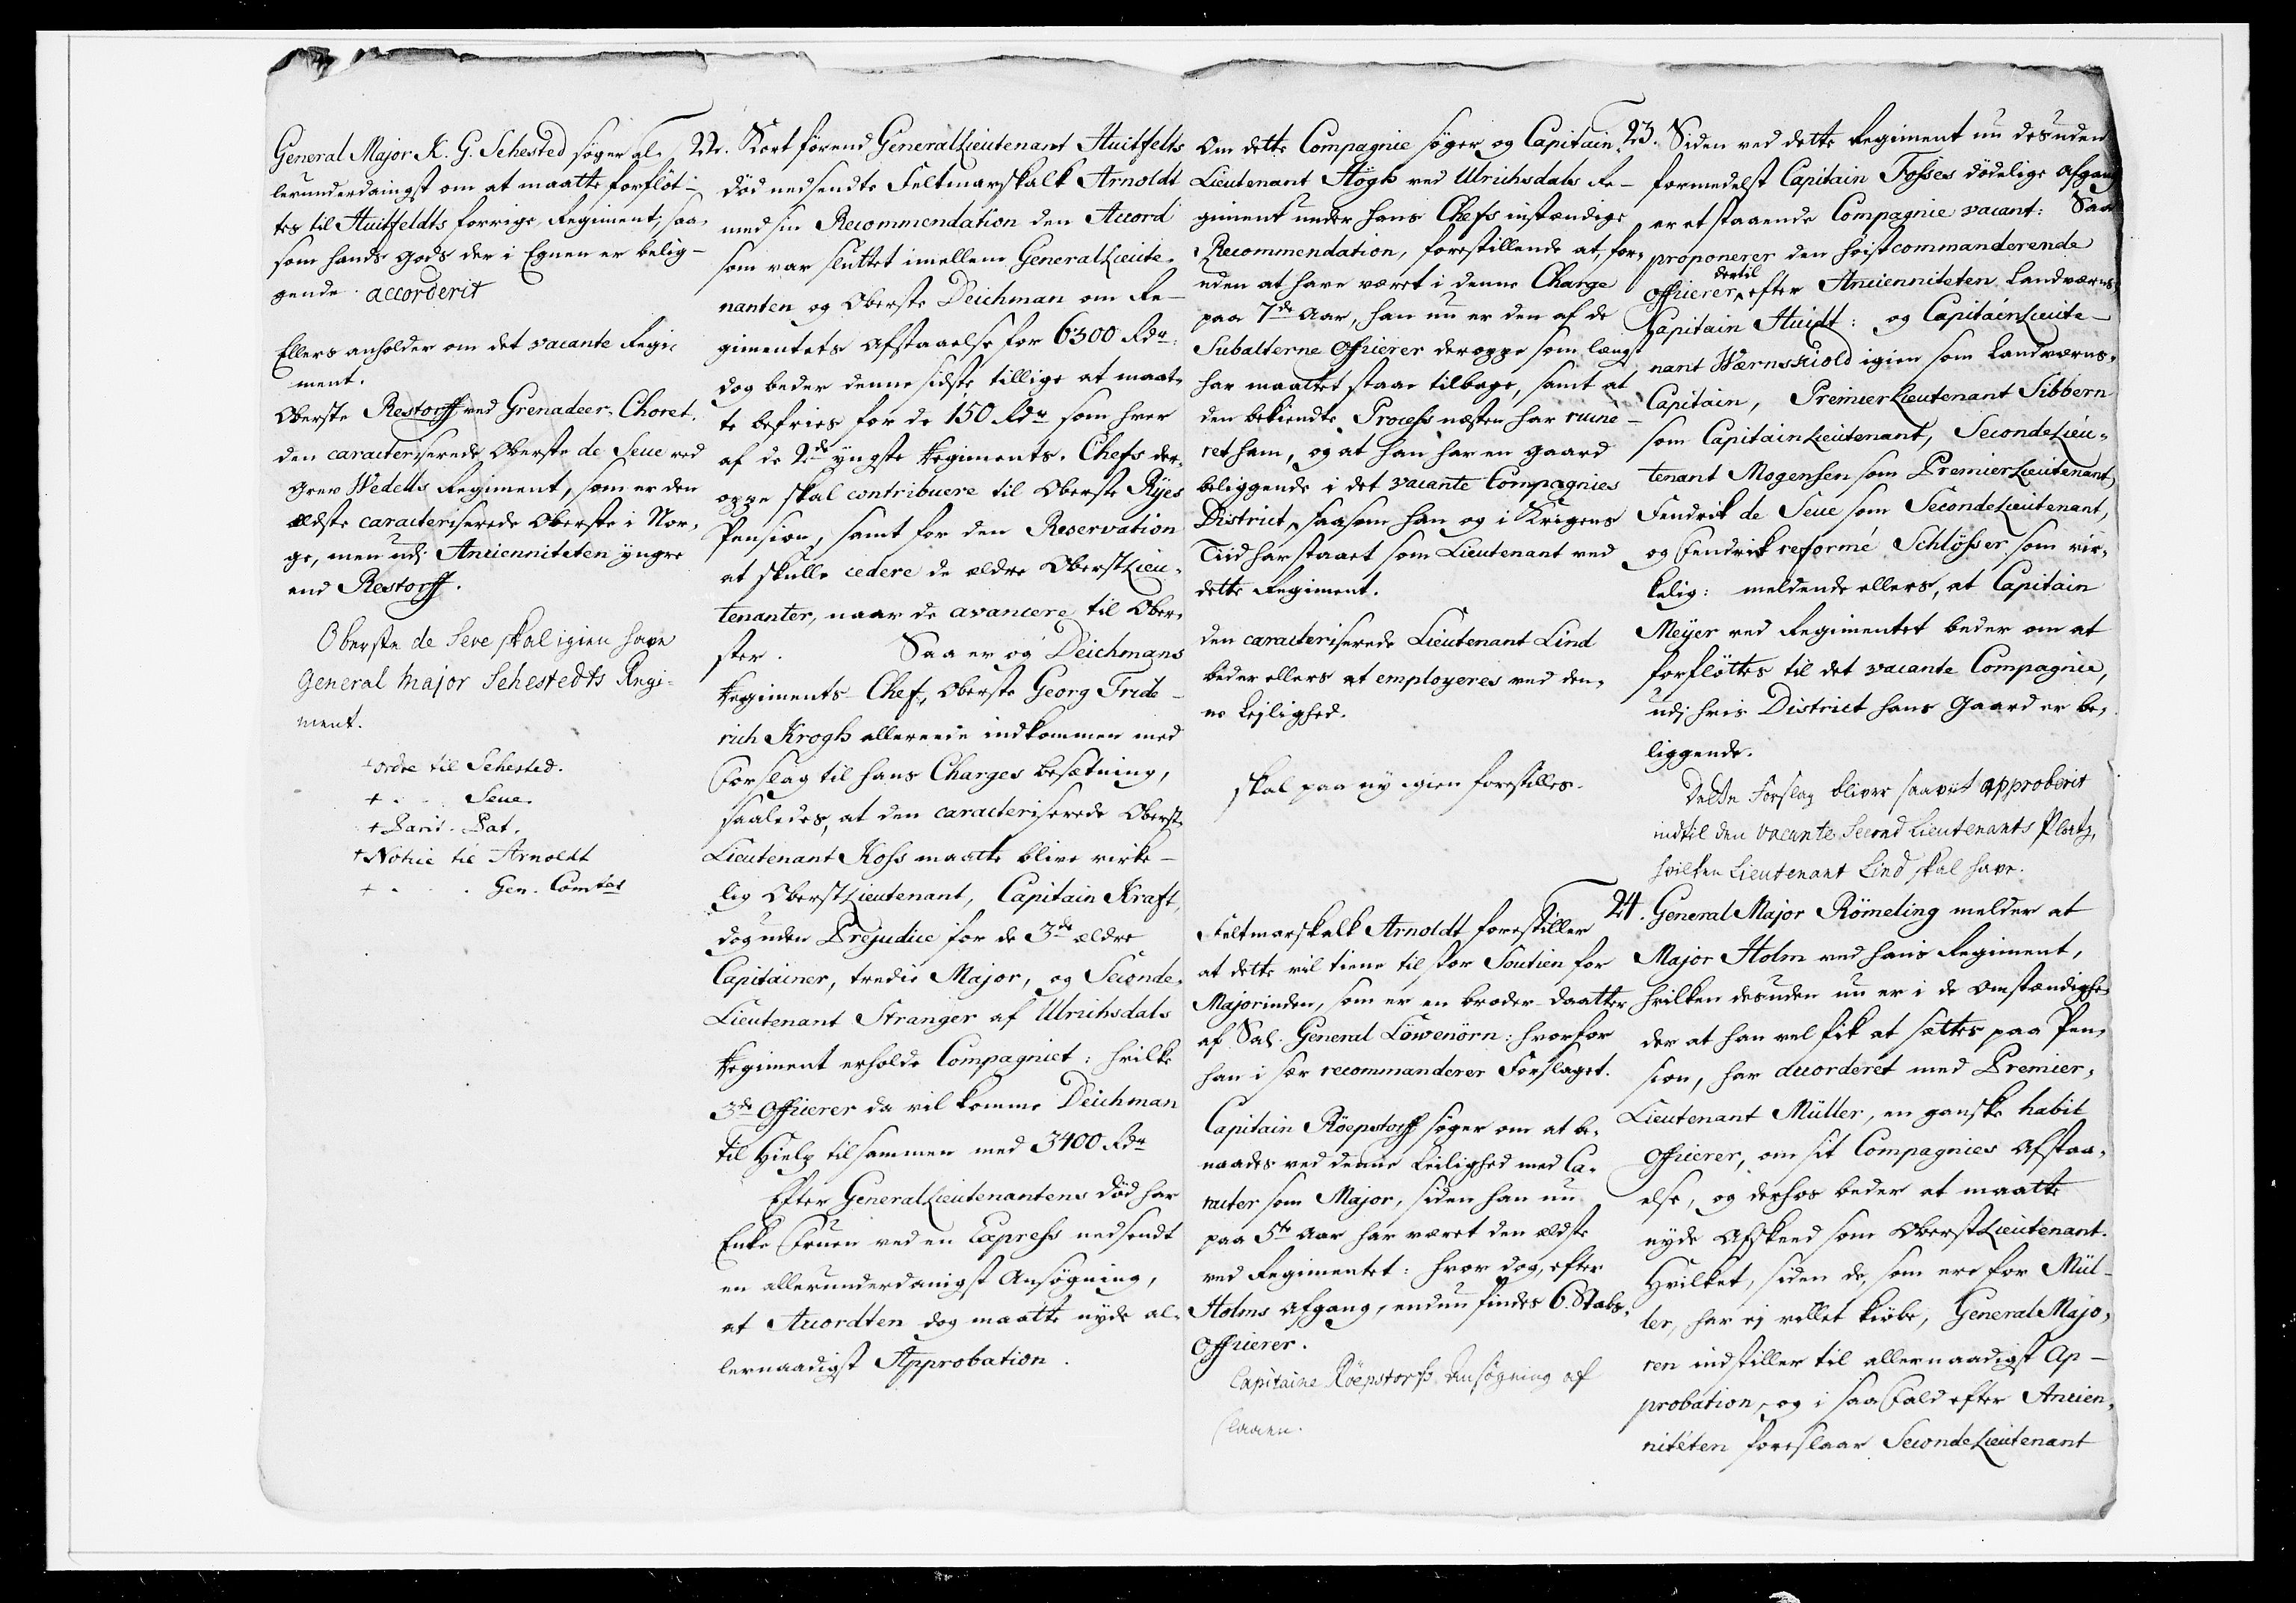 General Major K. G. Sehested søger al-
lerunderdanigst om at maatte forfløt-
tes til Huitfeldts forrige Regiment, saa-
som hands gods der i Egnen er belig-
gende. accorderit
Ellers anholder om det vacante Regi-
ment.
Oberste Restorff ved Grenadeer-Choret.
den caracteriserede Oberste de Seue ved
Grev Wedells Regiment, som er den
ældste caracteriserede Oberste i Nor-
ge, men udi Ancienniteten yngre
end Restorff.
Oberste de Seve skal igien have
General Major Sehestedts Regi-
ment.
+ ordre til Sehested.
+ . . Seue.
+ Parid. Pat.
+ Notice til Arnoldt
+ . . . Gen. Comtet
22. Kort førend GeneralLieutenant Huitfelts
død nedsendte Feltmarskalk Arnoldt
med sin Recommendation den Accord
som var sluttet imellem GeneralLieute-
nanten og Oberste Deichman om Re-
gimentets Afstaaelse for 6300 Rdr:
dog beder denne sidste tillige at maat-
te befries for de 150 Rdr som hver
af de 2de yngste Regiments-Chefs der-
oppe skal contribuere til Oberste Ryes
Pension, samt for den Reservation
at skulle cedere de ældre OberstLieu-
tenanter, naar de avancere til Ober-
ster. Saa er og Deichmans
Regiments-Chef, Oberste Georg Fride-
rich Krogh allereede indkommen med
Forslag til hans Charges besætning,
saaledes, at den caracteriserede Oberst-
Lieutenant Koss maatte blive virke-
lig OberstLieutenant, Capitain Kraft,
dog uden Præjudice for de 3de ældre
Capitainer, tredie Major, og Seconde-
Lieutenant Stranger af Ulrichsdals
Regiment erholde Compagniet: hvilke
3de Officerer da vil komme Deichman
til Hielp tilsammen med 3400 Rdr
Efter GeneralLieutenantens død har
Enke Fruen ved en Express nedsendt
en allerunderdanigst Ansøgning,
at Accordten dog maatte nyde al-
lernaadigst Approbation.
Om dette Compagnie søger og Capitain-
Lieutenant Høgh ved Ulrichsdals Re-
giment under hans Chefs instændige
Recommendation, forestillende at, for-
uden at have været i denne Charge
paa 7de Aar, han nu er den af de
Subalterne Officerer deroppe som længst
har maattet staae tilbage, samt at
den bekiendte Process næsten har ruine-
ret ham, og at han har en gaard
beliggende i det vacante Compagnies
District, saasom han og i Krigens
Tiid har staaet som Lieutenant ved
dette Regiment.
den caracteriserede Lieutenant Lind
beder ellers at employeres ved den-
ne Lejlighed.
skal paa ny igien forestilles.
Feltmarskalk Arnoldt forestiller
at dette vil tiene til stor Soutien for
Majorinden, som er en broder-daatter
af Sal. General Löwenörn: hvorfor
han i sær recommanderer Forslaget.
Capitain Röepstorff søger om at be-
naades ved denne Leilighed med Ca-
racter som Major, siden han nu
paa 5te Aar har været den ældste
ved Regimentet: hvor dog, efter
Holms afgang, endnu findes 6 Stabs-
Officerer.
Capitaine Röepstorfs Ansøgning af
slaaen.
23. Siden ved dette Regiment nu desuden
formedelst Capitain Fosses dødelige Afgang
er et staaende Compagnie vacant: Saa
proponerer den høistcommanderende
Officerer dertil efter Ancienniteten Landværns-
Capitain Huidt: og CapitainLieute-
nant Wærnskiold igien som Landværns-
Capitain, PremierLieutenant Sibbern
som CapitainLieutenant, SecondeLieu-
tenant Mogensen som PremierLieutenant,
Fendrik de Seue som SecondeLieutenant,
og Fendrik reformé Schlösser som vir-
kelig: meldende ellers, at Capitain
Meyer ved Regimentet beder om at
forfløttes til det vacante Compagnie,
udi hvis District hans Gaard er be-
liggende.
Dette Forslag bliver saavit approberit
indtil den vacante Second Lieutenants Platz,
hvilken Lieutenant Lind skal have.
24. General Major Römeling melder at
Major Holm ved hans Regiment,
hvilken desuden nu er i de Omstændighe-
der at han vel fik at sættes paa Pen-
sion, har accorderet med Premier-
Lieutenant Müller, en ganske habil
Officerer, om sit Compagnies Afstaa-
else, og derhos beder at maatte
nyde Afskeed som OberstLieutenant.
Hvilket, siden de, som ere for Mül-
ler, har ej villet kiøbe, General Majo-
ren indstiller til allernaadigst Ap-
probation, og i saa Fald efter Ancien-
niteten foreslaar SecondeLieutenant